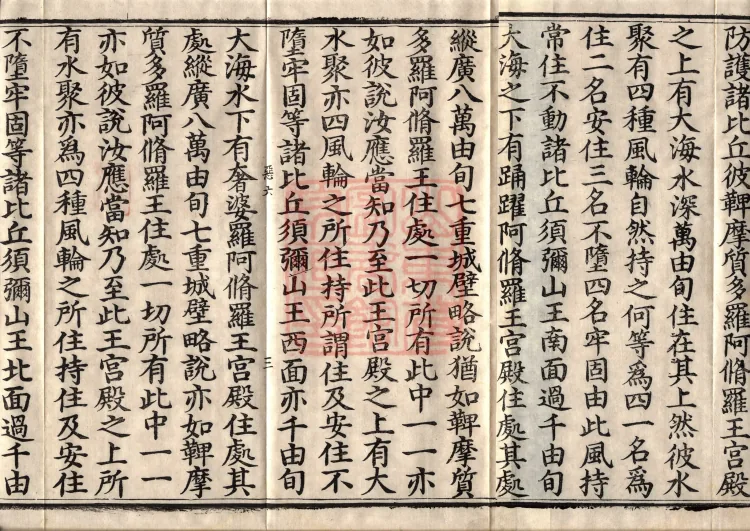 防護諸比丘彼鞞摩質多羅阿脩羅王宮殿
之上有大海水深萬由旬住在其上然彼水
聚有四種風輪自然持之何等為四一名為
住二名安住三名不墮四名牢固由此風持
常住不動諸比丘須彌山王南面過千由旬
大海之下有踊躍阿脩羅王宮殿住處其處
縱廣八萬由旬七重城壁略說猶如鞞摩質
多羅阿脩羅王住處一切所有此中一一亦
如彼說汝應當知乃至此王宮殿之上有大
水聚亦四風輪之所住持所謂住及安住不
墮牢固等諸比丘須彌山王西面亦千由旬
惡六
三
大海水下有奢婆羅阿脩羅王宮殿住處其
處縱廣八萬由旬七重城壁略說亦如鞞摩
質多羅阿脩羅王住處一切所有此中一一
亦如彼說汝應當知乃至此王宮殿之上所
有水聚亦為四種風輪之所住持住及安住
不墮牢固等諸比丘須彌山王北面過千由